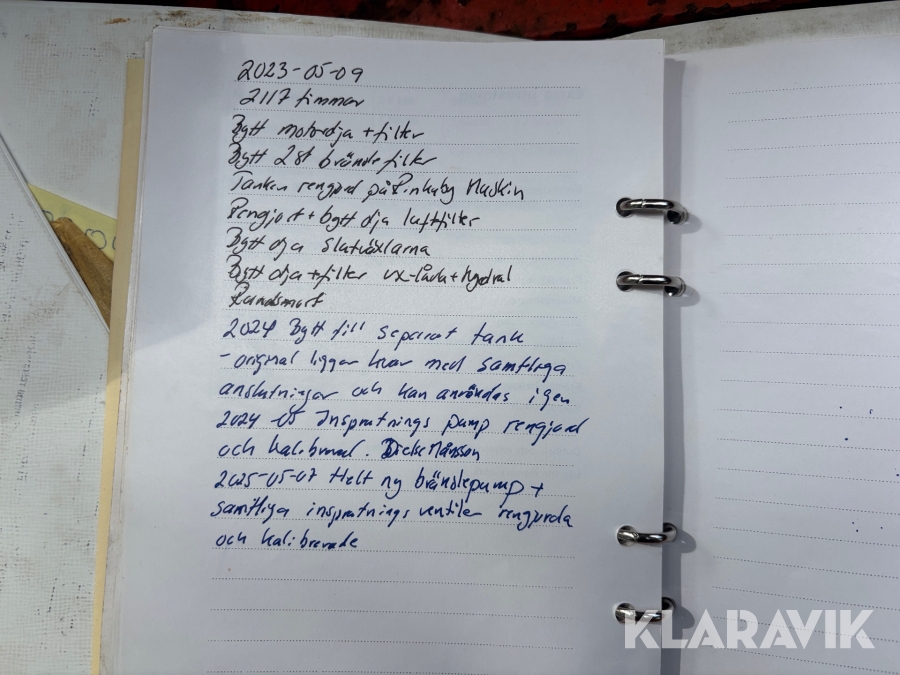 2023-05-09
2117 timmar
Bytt motorolja + filter
Bytt 2st bränslefilter
Tanken rengjord på Maskin
Rengjort + bytt olja luftfilter
Bytt olja slutväxlarna
Bytt olja + filter vx-låda + hydral
Rundsmort
2024 Bytt till separat tank
- original ligger kvar med samtliga
anslutningar och kan användas igen
2024 05 Insprutnings pump rengjord
och kalibrerad. Dieselmånsson
2025-05-07 Helt ny bränslepump +
samtliga insprutnings ventiler rengjorda
och kalibrerade
KLARAVIK